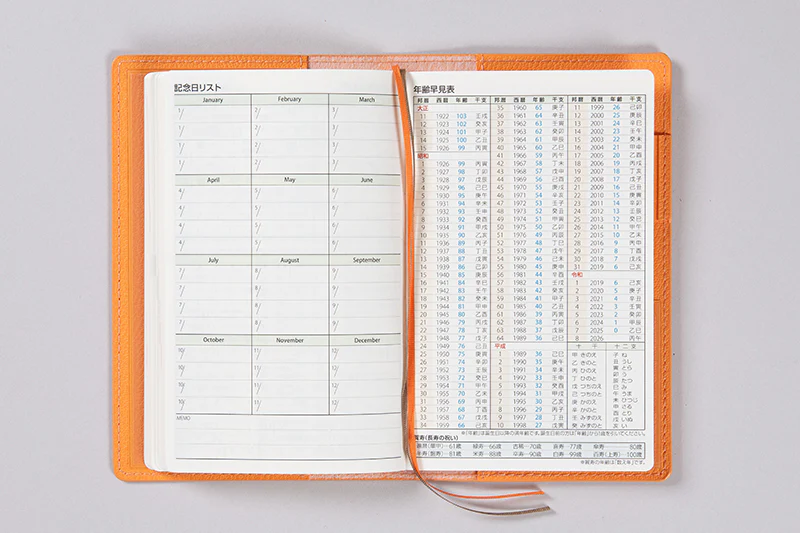 記念日リスト
January February March
1/ 2/ 3/
1/ 2/ 3/
1/ 2/ 3/
1/ 2/ 3/
April May June
4/ 5/ 6/
4/ 5/ 6/
4/ 5/ 6/
4/ 5/ 6/
July August September
7/ 8/ 9/
7/ 8/ 9/
7/ 8/ 9/
7/ 8/ 9/
October November December
10/ 11/ 12/
10/ 11/ 12/
10/ 11/ 12/
10/ 11/ 12/
MEMO
年齢早見表
邦暦 西暦 年齢 干支
大正
11 1922 103 壬戌
12 1923 102 癸亥
13 1924 101 甲子
14 1925 100 乙丑
15 1926 99 丙寅
昭和
1 1926 99 丙寅
2 1927 98 丁卯
3 1928 97 戊辰
4 1929 96 己巳
5 1930 95 庚午
6 1931 94 辛未
7 1932 93 壬申
8 1933 92 癸酉
9 1934 91 甲戌
10 1935 90 乙亥
11 1936 89 丙子
12 1937 88 丁丑
13 1938 87 戊寅
14 1939 86 己卯
15 1940 85 庚辰
16 1941 84 辛巳
17 1942 83 壬午
18 1943 82 癸未
19 1944 81 甲申
20 1945 80 乙酉
21 1946 79 丙戌
22 1947 78 丁亥
23 1948 77 戊子
24 1949 76 己丑
25 1950 75 庚寅
26 1951 74 辛卯
27 1952 73 壬辰
28 1953 72 癸巳
29 1954 71 甲午
30 1955 70 乙未
31 1956 69 丙申
32 1957 68 丁酉
33 1958 67 戊戌
34 1959 66 己亥
邦暦 西暦 年齢 干支
35 1960 65 庚子
36 1961 64 辛丑
37 1962 63 壬寅
38 1963 62 癸卯
39 1964 61 甲辰
40 1965 60 乙巳
41 1966 59 丙午
42 1967 58 丁未
43 1968 57 戊申
44 1969 56 己酉
45 1970 55 庚戌
46 1971 54 辛亥
47 1972 53 壬子
48 1973 52 癸丑
49 1974 51 甲寅
50 1975 50 乙卯
51 1976 49 丙辰
52 1977 48 丁巳
53 1978 47 戊午
54 1979 46 己未
55 1980 45 庚申
56 1981 44 辛酉
57 1982 43 壬戌
58 1983 42 癸亥
59 1984 41 甲子
60 1985 40 乙丑
61 1986 39 丙寅
62 1987 38 丁卯
63 1988 37 戊辰
64 1989 36 己巳
平成
1 1989 36 己巳
2 1990 35 庚午
3 1991 34 辛未
4 1992 33 壬申
5 1993 32 癸酉
6 1994 31 甲戌
7 1995 30 乙亥
8 1996 29 丙子
9 1997 28 丁丑
10 1998 27 戊寅
邦暦 西暦 年齢 干支
11 1999 26 己卯
12 2000 25 庚辰
13 2001 24 辛巳
14 2002 23 壬午
15 2003 22 癸未
16 2004 21 甲申
17 2005 20 乙酉
18 2006 19 丙戌
19 2007 18 丁亥
20 2008 17 戊子
21 2009 16 己丑
22 2010 15 庚寅
23 2011 14 辛卯
24 2012 13 壬辰
25 2013 12 癸巳
26 2014 11 甲午
27 2015 10 乙未
28 2016 9 丙申
29 2017 8 丁酉
30 2018 7 戊戌
31 2019 6 己亥
令和
1 2019 6 己亥
2 2020 5 庚子
3 2021 4 辛丑
4 2022 3 壬寅
5 2023 2 癸卯
6 2024 1 甲辰
7 2025 0 乙巳
8 2026 丙午
十干 十二支
甲 きのえ 子 ね
乙 きのと 丑 うし
丙 ひのえ 寅 とら
丁 ひのと 卯 う
戊 つちのえ 辰 たつ
己 つちのと 巳 み
庚 かのえ 午 うま
辛 かのと 未 ひつじ
壬 みずのえ 申 さる
癸 みずのと 酉 とり
戌 いぬ
亥 い
※「年齢」は誕生日以降の満年齢です。誕生日前の方は「年齢」から1歳を引いてください。
賀寿(長寿の祝い)
還暦(華甲)—61歳 緑寿—66歳 古稀—70歳 喜寿—77歳 傘寿—80歳
半寿(盤寿)—81歳 米寿—88歳 卒寿—90歳 白寿—99歳 百寿(上寿)—100歳
※賀寿の年齢は「数え年」です。